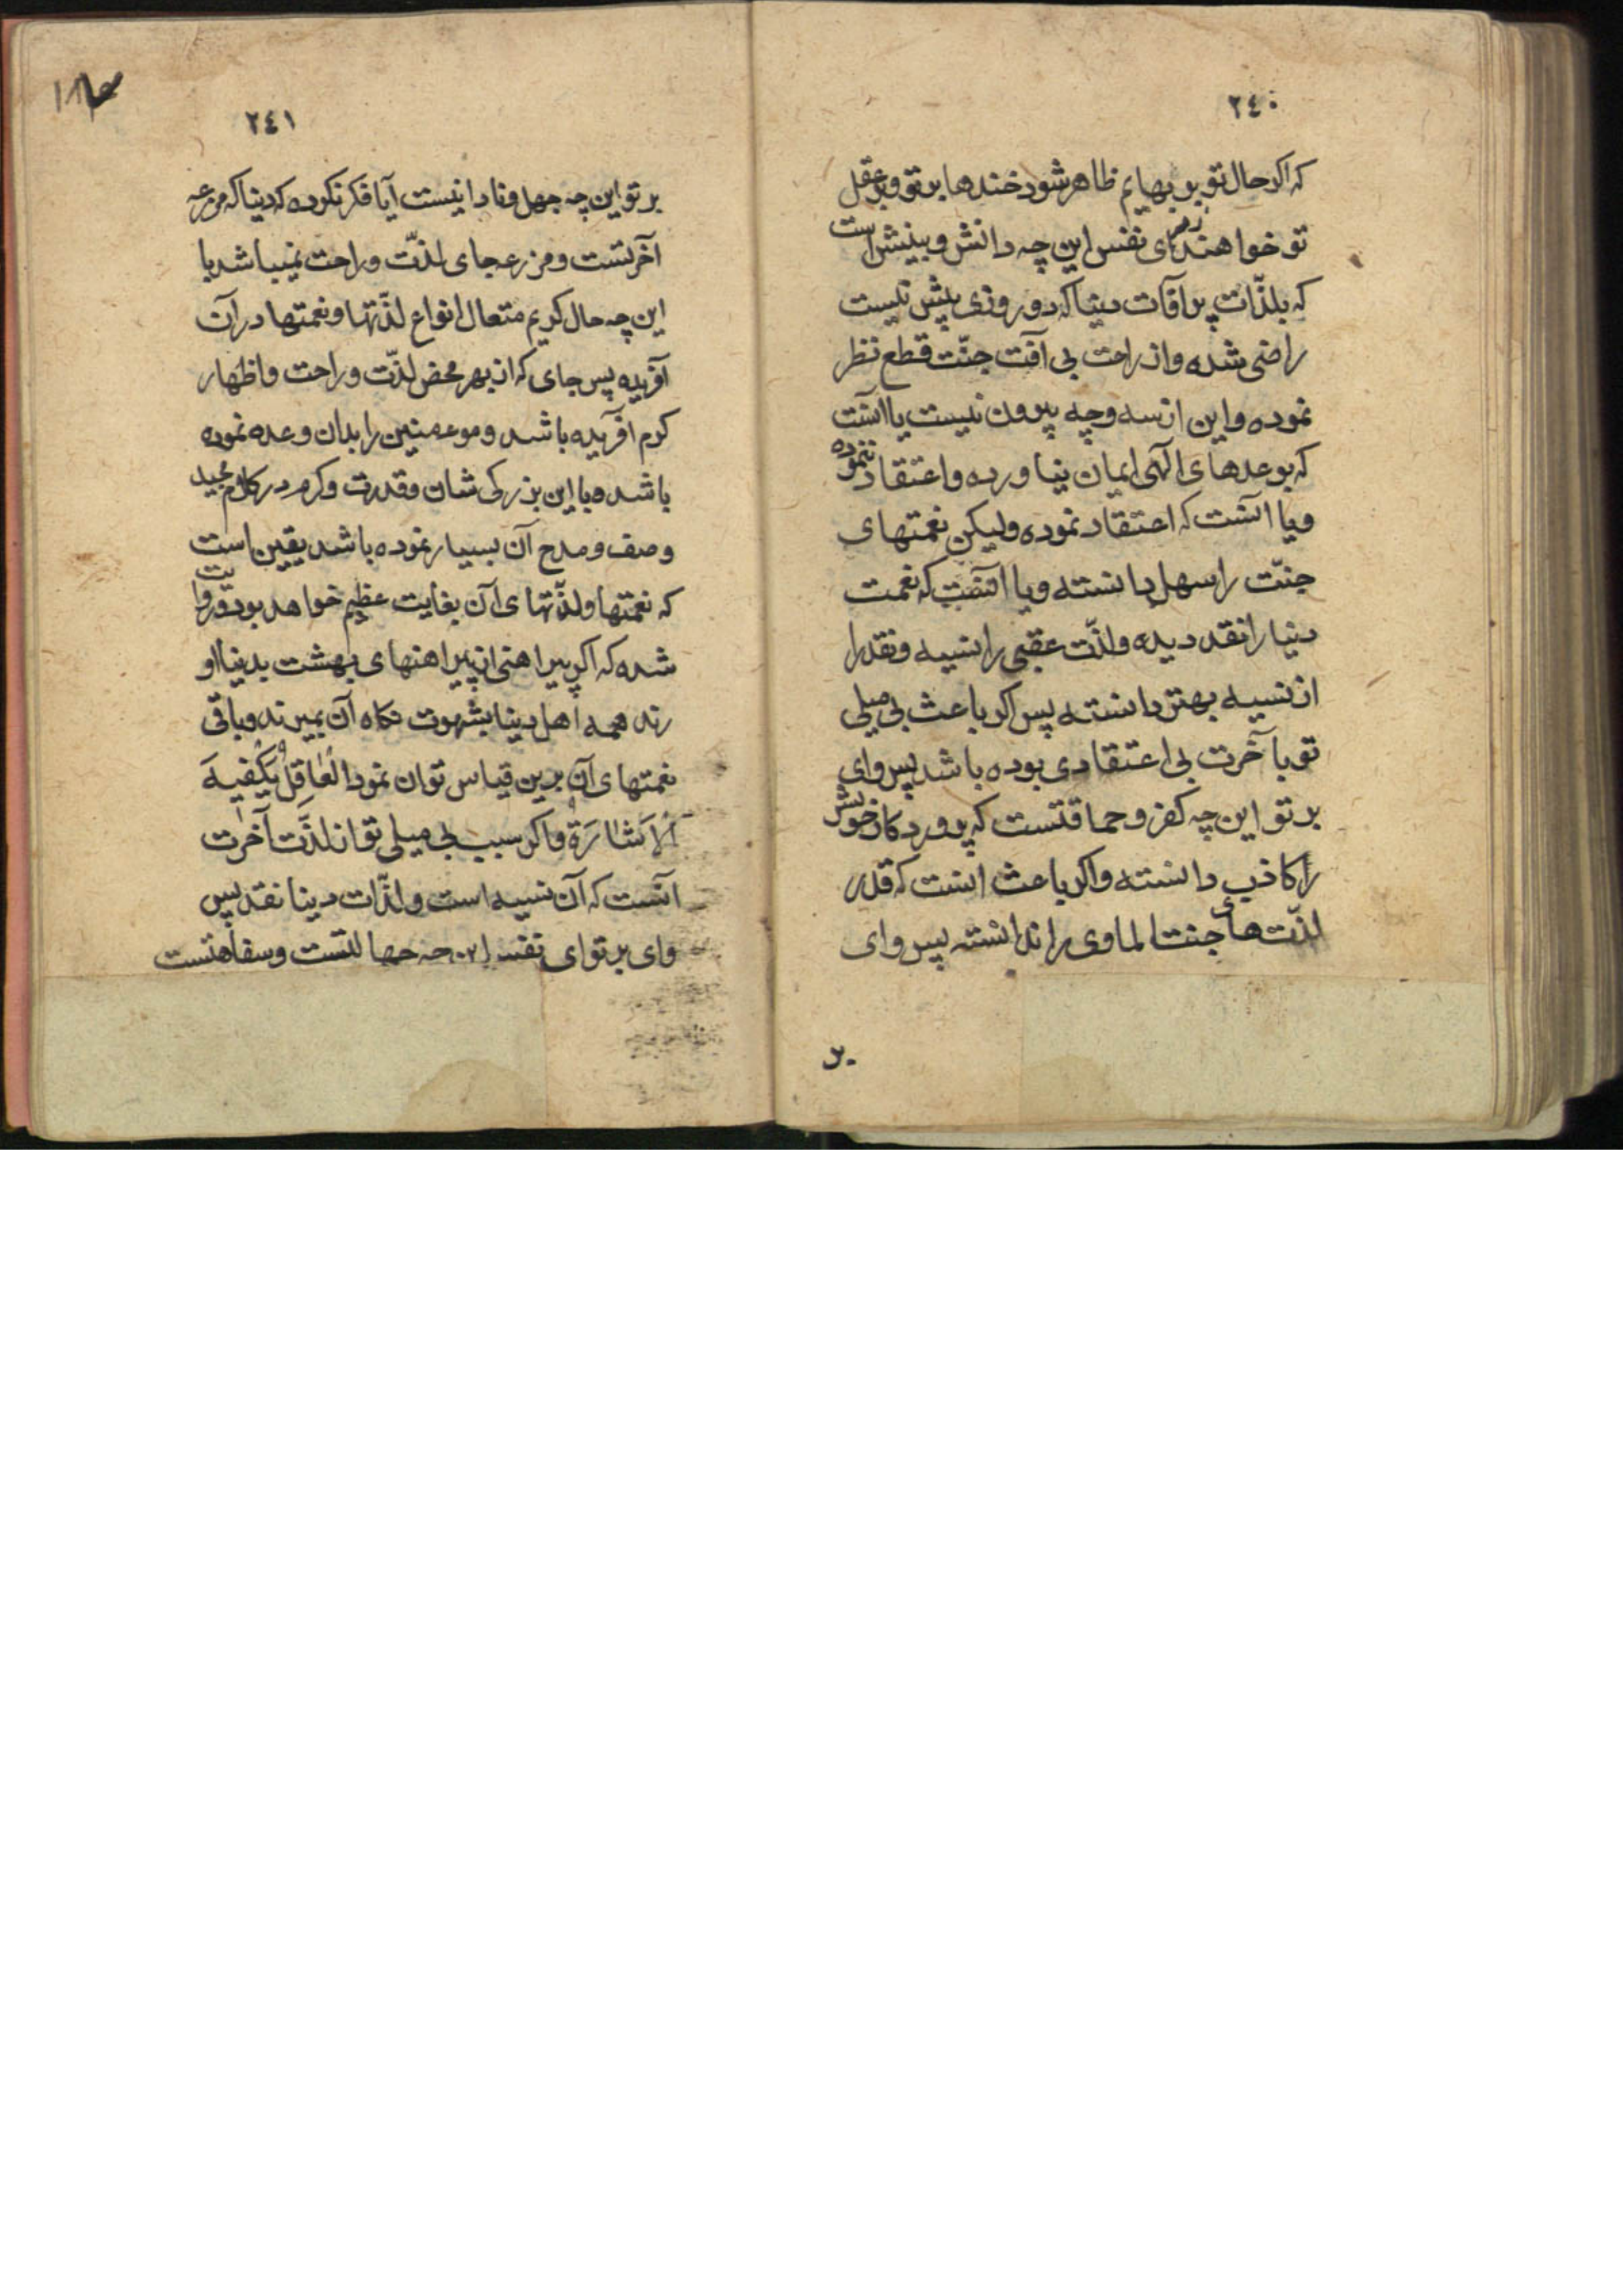 ٢٤٠
که اکر حال تو بر بهایم ظاهر شود خندها بر تو و بر عقل
تو خواهند زد ای نفس این چه دانش و بینش است
که بلذّات پر آفات دنیا که دو روزی بیش نیست
راضی شده و از راحت بی آفت جنّت قطع نظر
نموده و این از سه وجه بیرون نیست یا آنست
که بوعدهای الهی ایمان نیاورده و اعتقاد ننموده
و یا آنست که اعتقاد نموده ولیکن نعمتهای
جنّت را سهل دانسته و یا آنست که نعمت
دنیا را نقد دیده و لذّت عقبی را نسیه و نقد را
از نسیه بهتر دانسته پس اکر باعث بی میلی
تو بآخرت بی اعتقادی بوده باشد پس وای
بر تو این چه کفر و حماقتست که پروردکار خویش
را کاذب دانسته و اکر باعث اینست که قدر
لذّت های جنت الماوی را ندانسته پس وای
بر
٢٤١
بر تو این چه جهل و نادانیست آیا فکر نکرده که دنیا که مزرعه
آخرتست و مزرعه جای لذّت و راحت نمیباشد با
این چه حال کریم متعال انواع لذّتها و نعمتها در آن
آفریده پس جای که از بهر محض لذّت و راحت و اظهار
کرم آفریده باشد و موءمنین را بدان وعده نموده
باشد و با این بزرکی شان و قدرت و کرم در کلام مجید
وصف و مدح آن بسیار نموده باشد یقین است
که نعمتها و لذّتهای آن بغایت عظیم خواهد بود و روایت
شده که اکر پیراهنی از پیراهنهای بهشت بدنیا او
رند همه اهل دنیا بشهوت نکاه آن بمیرند و باقی
نعمتهای آن برین قیاس توان نمود العٰاقِلُ یَکْفیهِ
الاَشٰارَة و اکر سبب بی میلی تو از لذَّت آخرت
آنست که آن نسیه است و لذّات دنیا نقد پس
وای بر تو ای نفس این چه جهالتست و سفاهتست